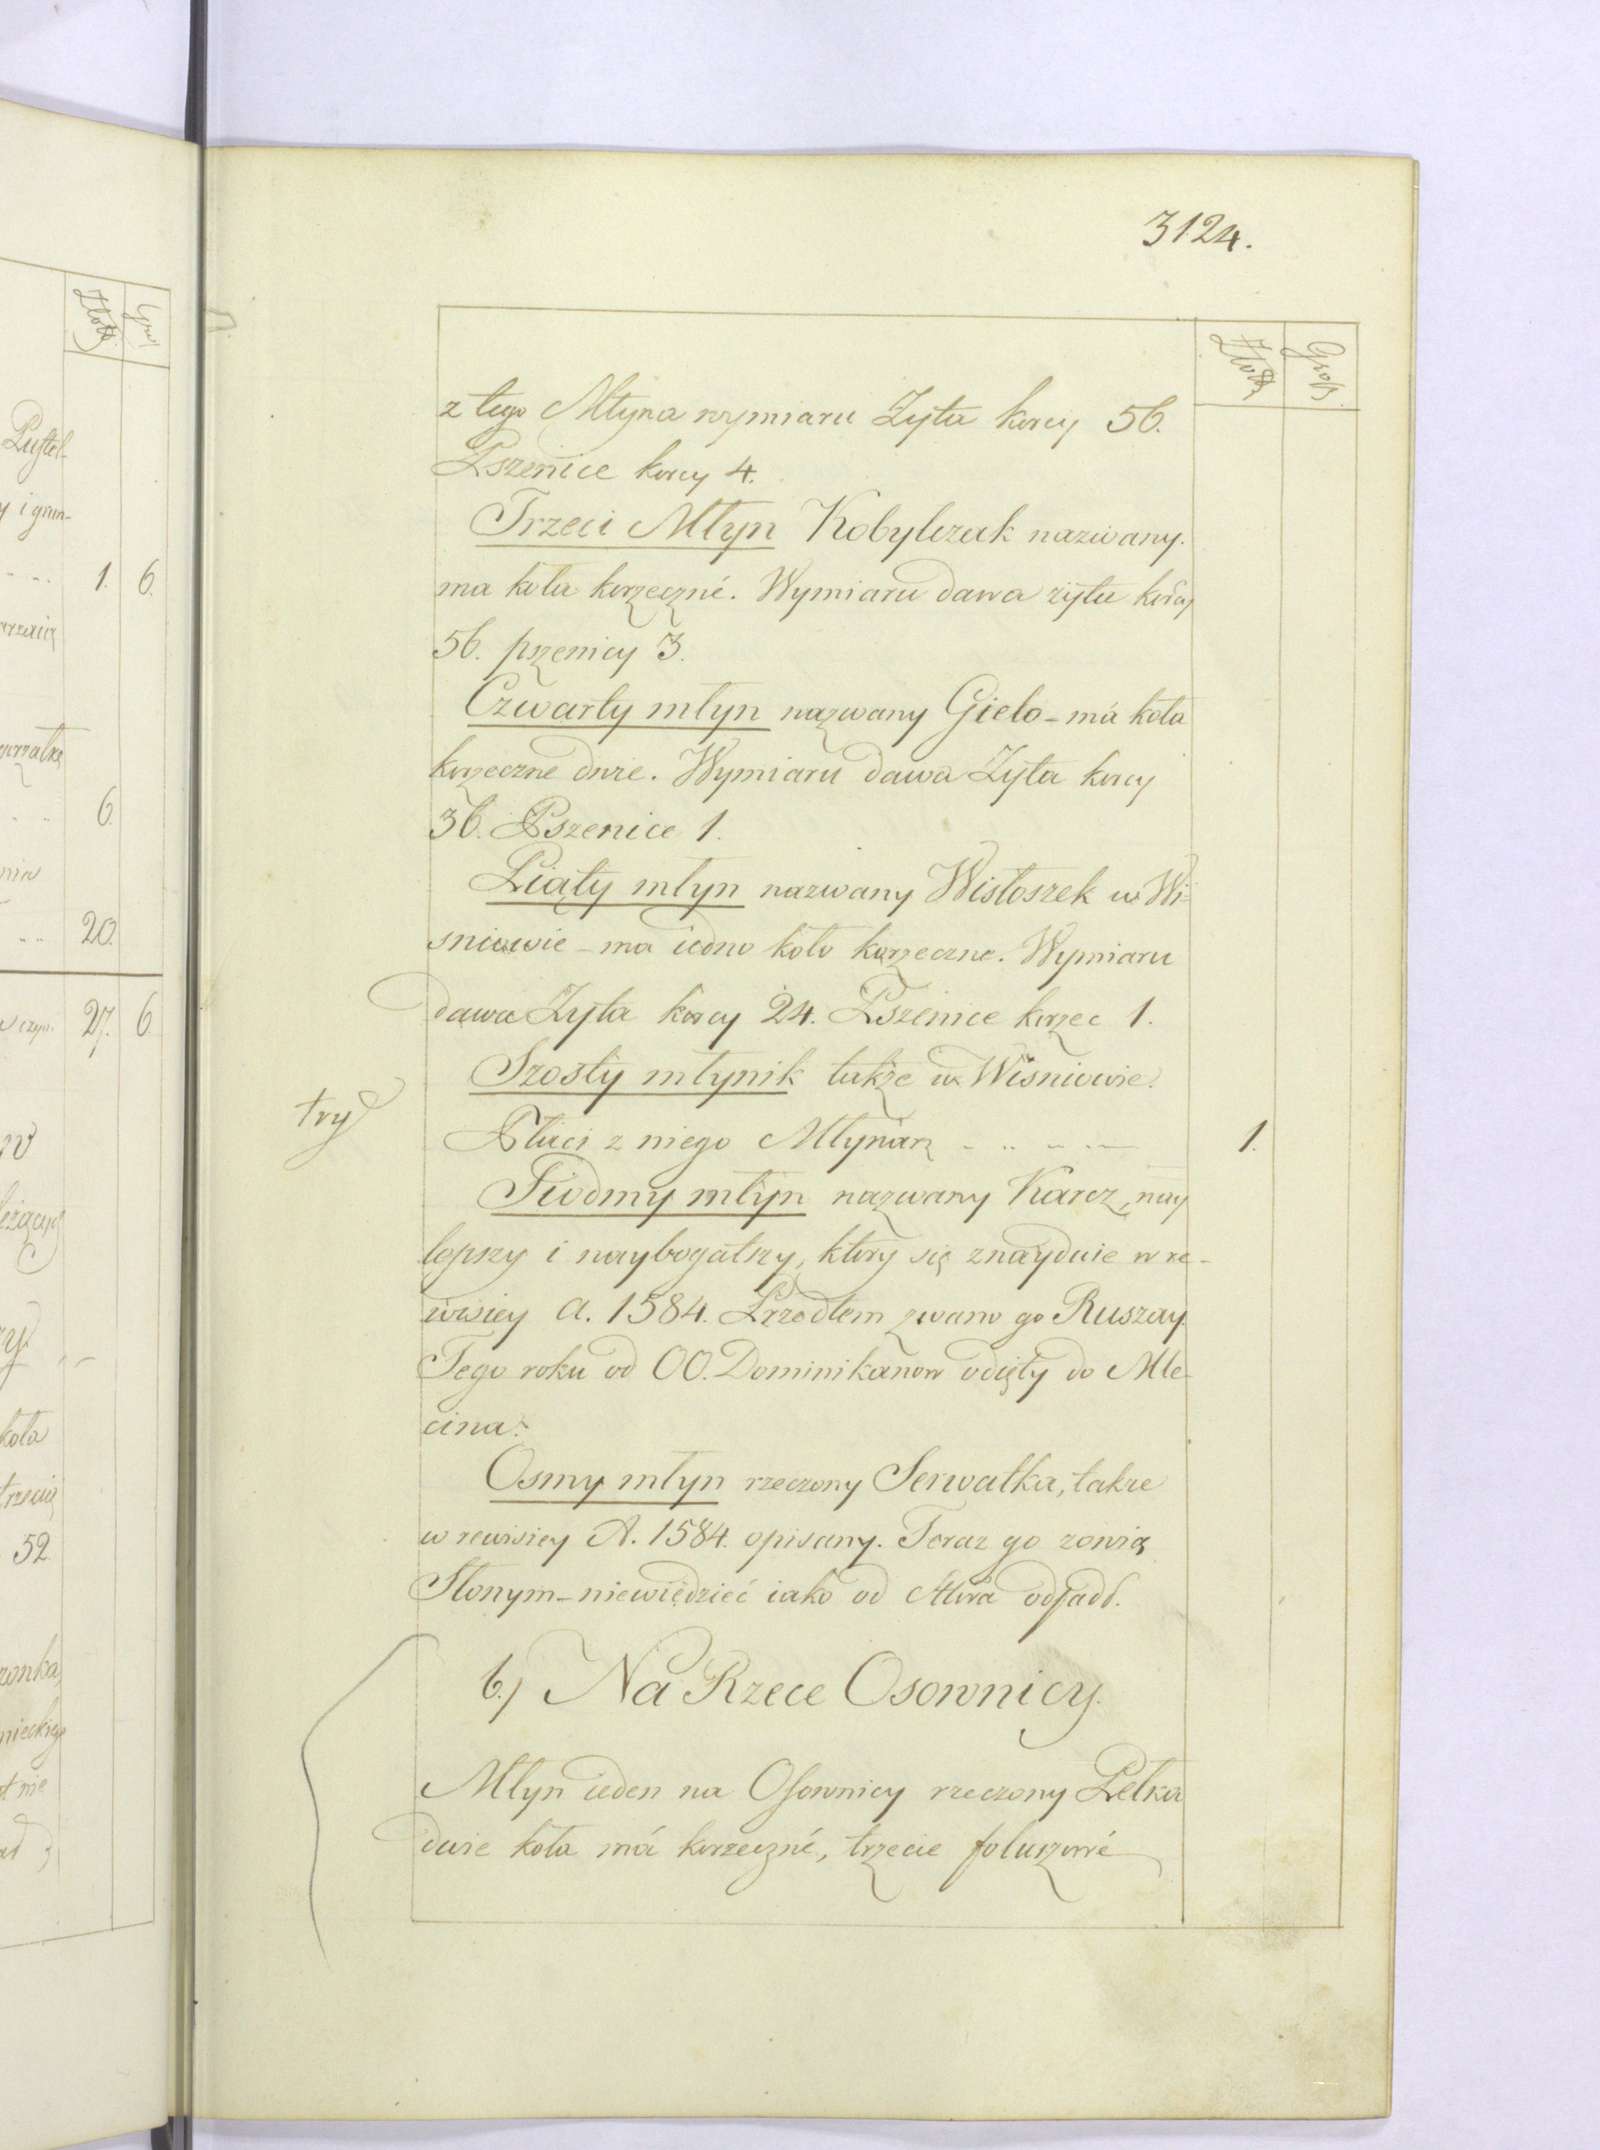 3124.
Złotſ. Groſſ.
z tego Młyna wymiaru Zyta korcy 56.
Pszenice korcy 4.
Trzeci Młyn Kobylczak nazwany.
ma koła korzeczné. Wymiaru dawa zyta korcy
56. pszenicy 3.
Czwarty młyn nazwany Gielo - má koła
korzeczne dwie. Wymiaru dawa Zyta korcy
36. Pszenice 1.
Piąty młyn nazwany Wistoszek w Wi-
sniowie - ma iedno koło korzeczne. Wymiaru
dawa Zyta korcy 24. Pszenice korzec 1.
Szosty młynik także w Wisniowie.
try
Płaci z niego Młynarz - .. - - 1.
Siodmy młyn nazwany Karcz, nay
lepszy i naybogatszy, ktory się znayduie w re-
wisiey a. 1584. Przedtem zwano go Ruszay.
Tego roku od OO. Dominikanow odięty do Mle-
cina.
Osmy młyn rzeczony Serwatka, takze
w rewisiey A. 1584. opisany. Teraz go zowią
Słonym - niewiedzieć iako od Dwora odpadł.
6.) Na Rzece Osownicy.
Młyn ieden na Oſownicy rzeczony Pełka
dwie koła má korzeczné, trzecie foluszowé
Złotſ. Groſ.
Puſtel-
y i grun-
1. 6.
6.
nia
20.
27. 6
leżący
koła
52